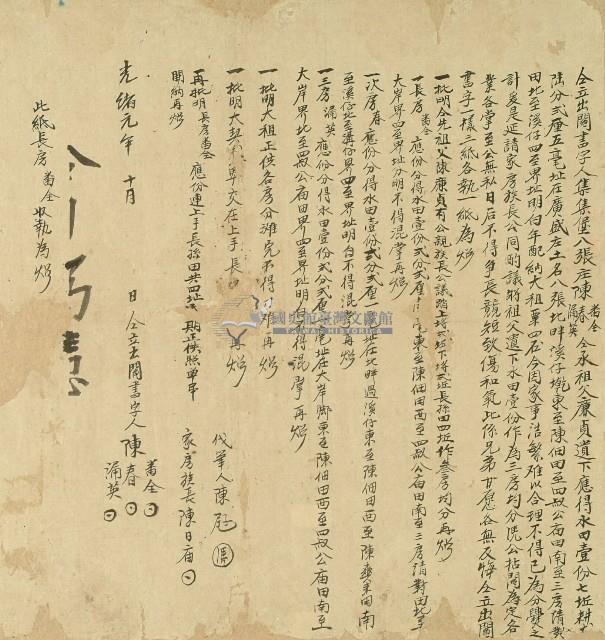 仝立出鬮書字人集集堡八張庄陳番仝春湧英仝承祖父廉貞遺下應得水田壹份七坵耕
陸分弍厘五毫址在廣盛庄土名八張北畔溪仔墘東至陳佃田至四叔公庙田南至三房清對
田北至溪仔四至界址明白年配納大租粟四石今因家事浩繁难以合理不得已為分爨之
計爰是延請家房族長公同酌議將祖父遺下水田壹份作為三房均分凭公拈鬮為定各
業各掌至公無私日后不得爭長競短致傷和氣此係兄弟甘愿各無反悔仝立出鬮
書字一樣三紙各執一紙為炤
一批明仝先祖父陳廉貞有公親族長公議踏上長孫田四坵作叁房均分再炤
一長房番仝應份分得水田壹份弍分弍厘東至陳佃田西至四叔公庙田南至三房清對田北至
大岸界四至界址分明不得混掌再炤
一次房春應份分得水田壹份弍分弍厘一毫址在北畔過溪仔東至陳佃田西至陳田南
至溪仔北至溝仔界四至界址明白不得混再炤
一三房湧英應份分得水田壹份弍分弍厘毫址在大岸脚東至陳佃田西至四叔公庙田南至
大岸界北至四叔公庙田界四至界址明白不得混掌再炤
一批明大租正供各房分灘完不得再炤
一批明大契卓交在上手長再炤
一再批明長房番仝應份連上手長孫田共四坵貼正供照单吊
開納再炤
代筆人陳
家房族長陳日庙
光緒元年十月日仝立出鬮書字人陳番仝春湧英
此紙長房番仝收執為炤
國史館臺灣文獻館
TAIWAN HISTORICA